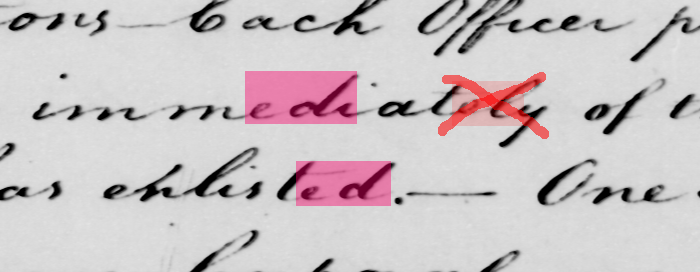 ons — Each Officer p
immediately of t
as enlisted. — One